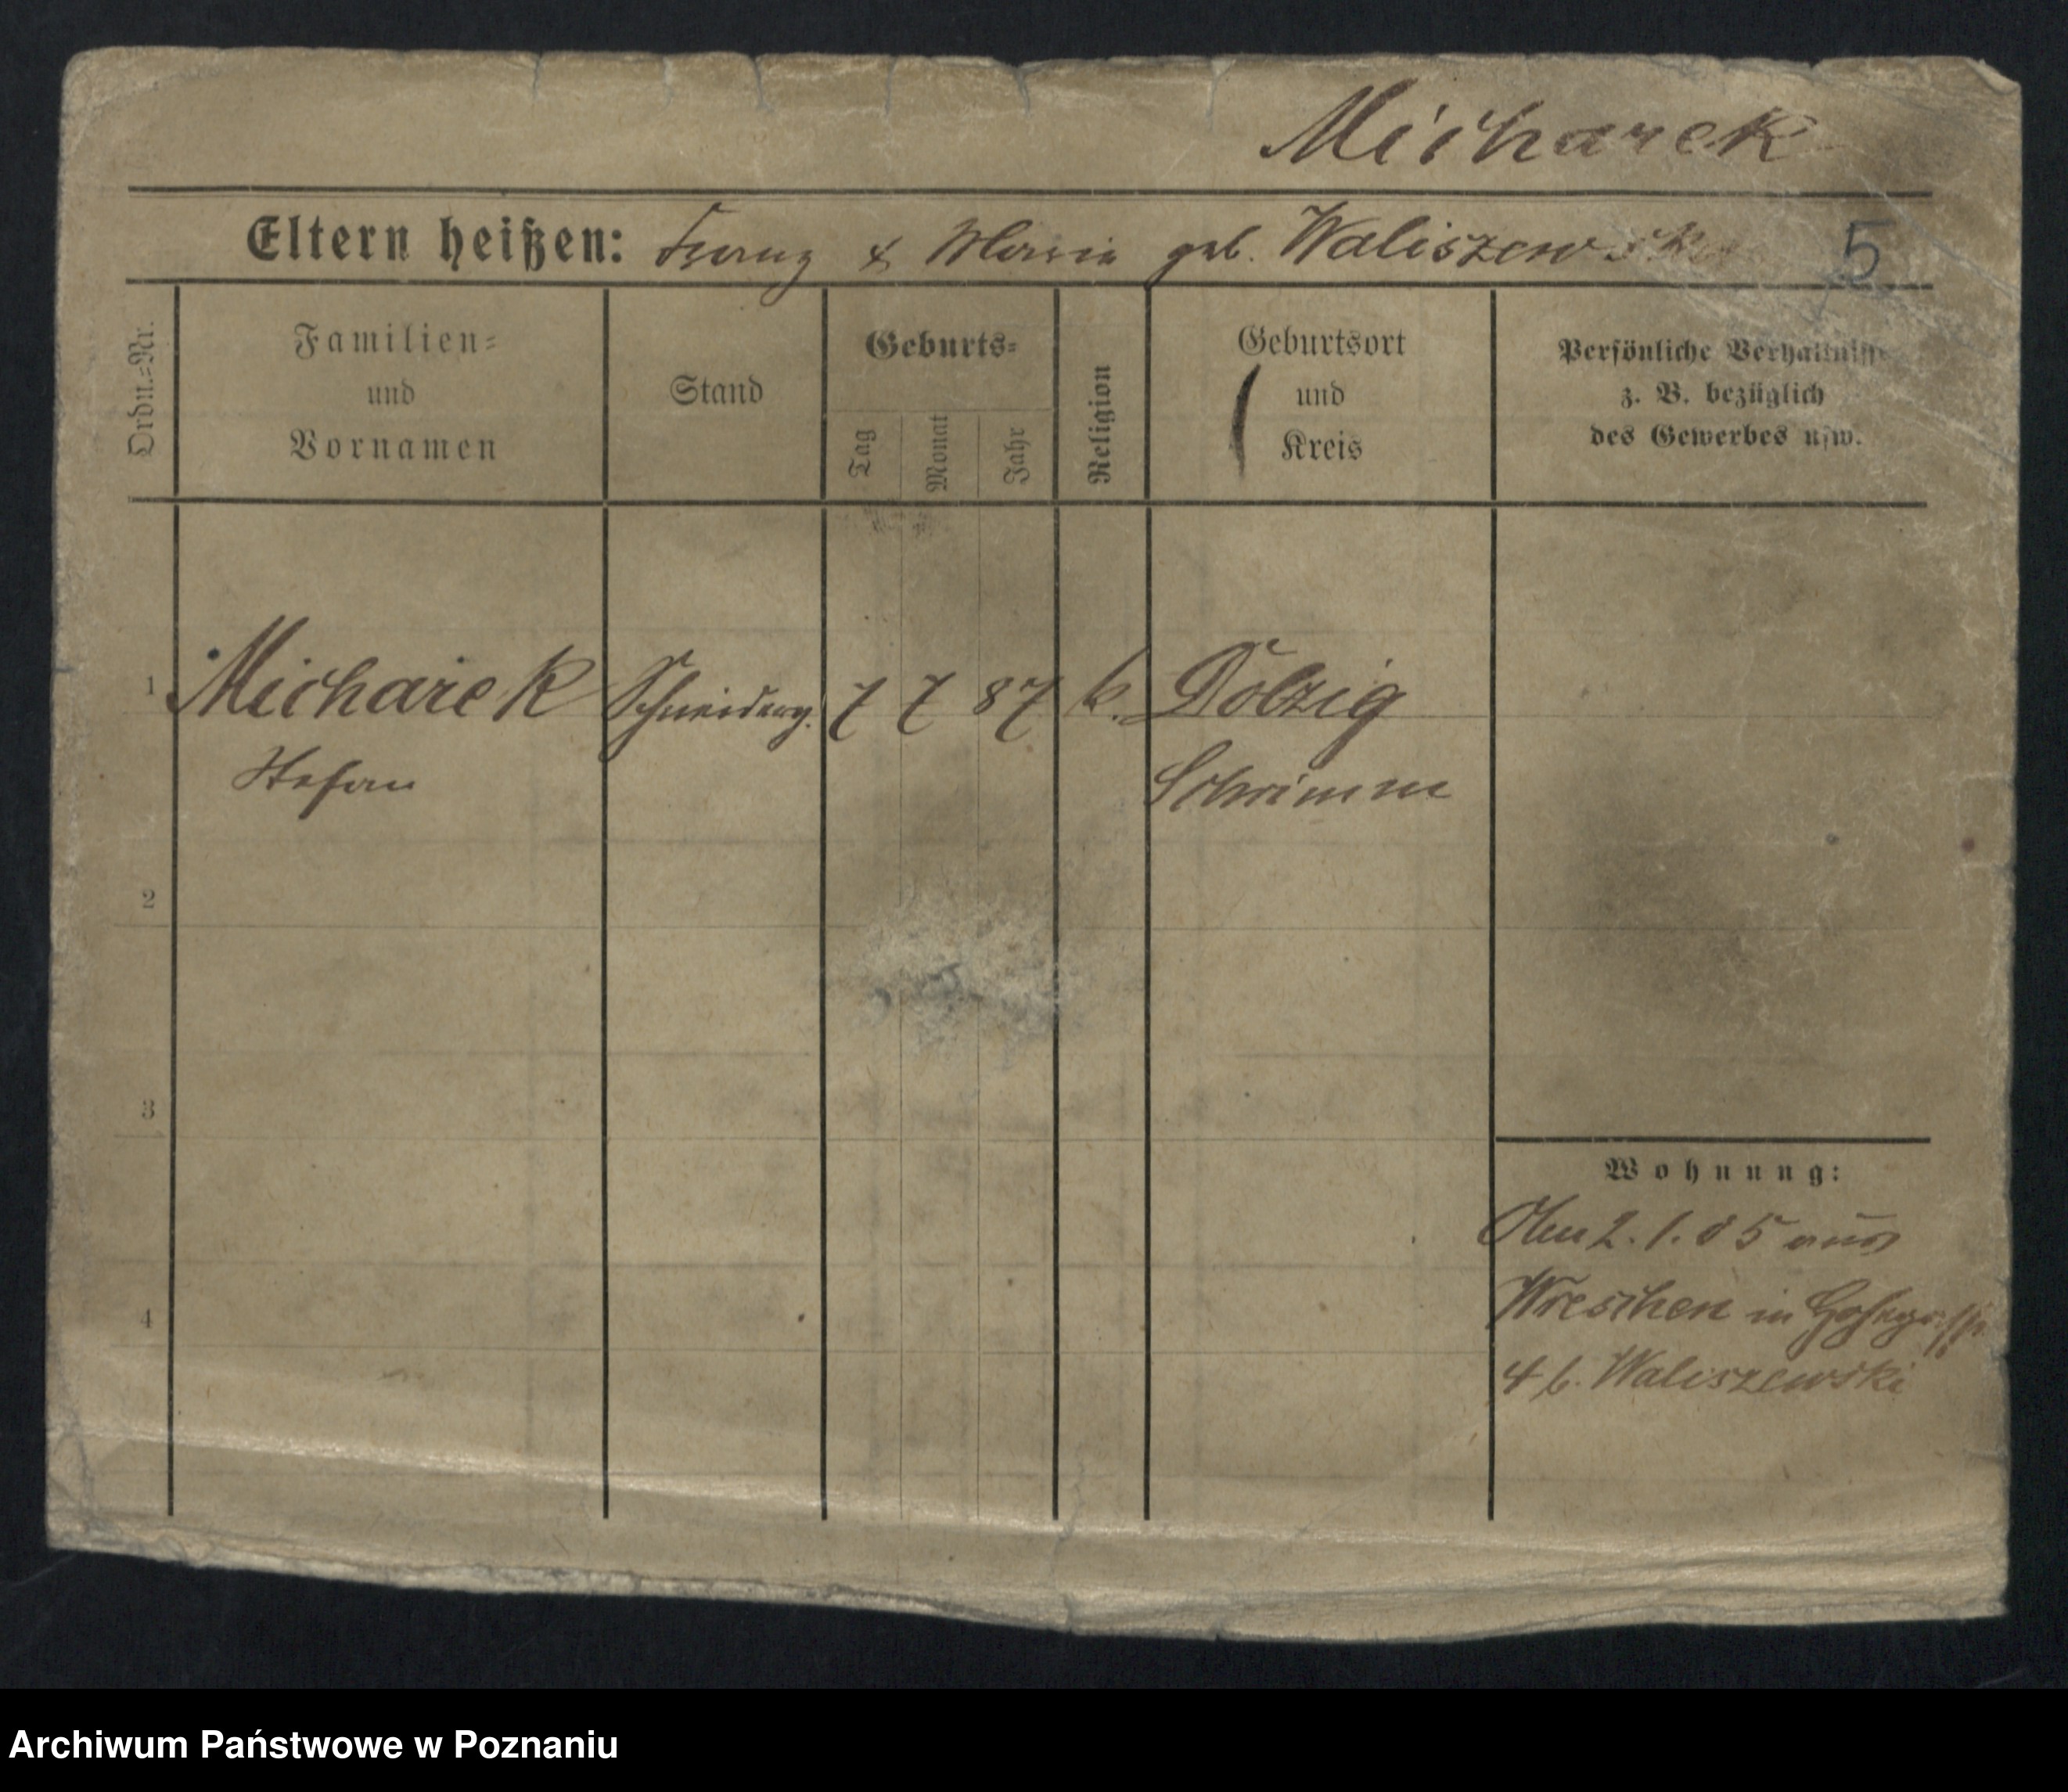 Micharek
Eltern heißen: Franz & Maria geb. Waliszewska 5
Ordn.=Nr.
Familien=
und
Vornamen
Stand
Geburts=
Tag
Monat
Jahr
Religion
Geburtsort
und
Kreis
Persönliche Verhältnisse
z. B. bezüglich
des Gewerbes usw.
1 Micharek Schneiderg. 7 7 87 k. Dolzig
Stefan Schrimm
2
3
4
Wohnung:
Am 2.1.05 aus
Wreschen in
4 b. Waliszewski
Archiwum Państwowe w Poznaniu